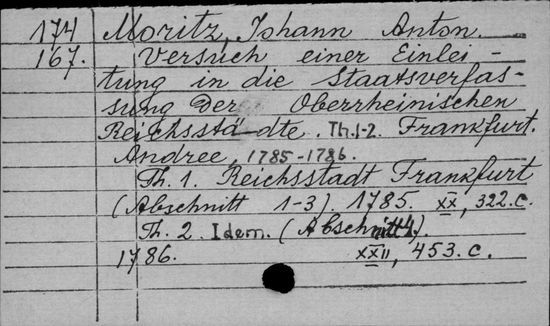 174 Moritz, Johann Anton.
167. Versuch einer Einlei-
tung in die Staatsverfas-
sung der Oberrheinischen
Reichsstädte. Th.1-2. Frankfurt.
Andree, 1785-1786.
Th. 1. Reichsstadt Frankfurt
(Abschnitt 1-3). 1785. XX, 322.c.
Th. 2. Idem. (Abschnitt 4).
1786. XXII, 453.c.